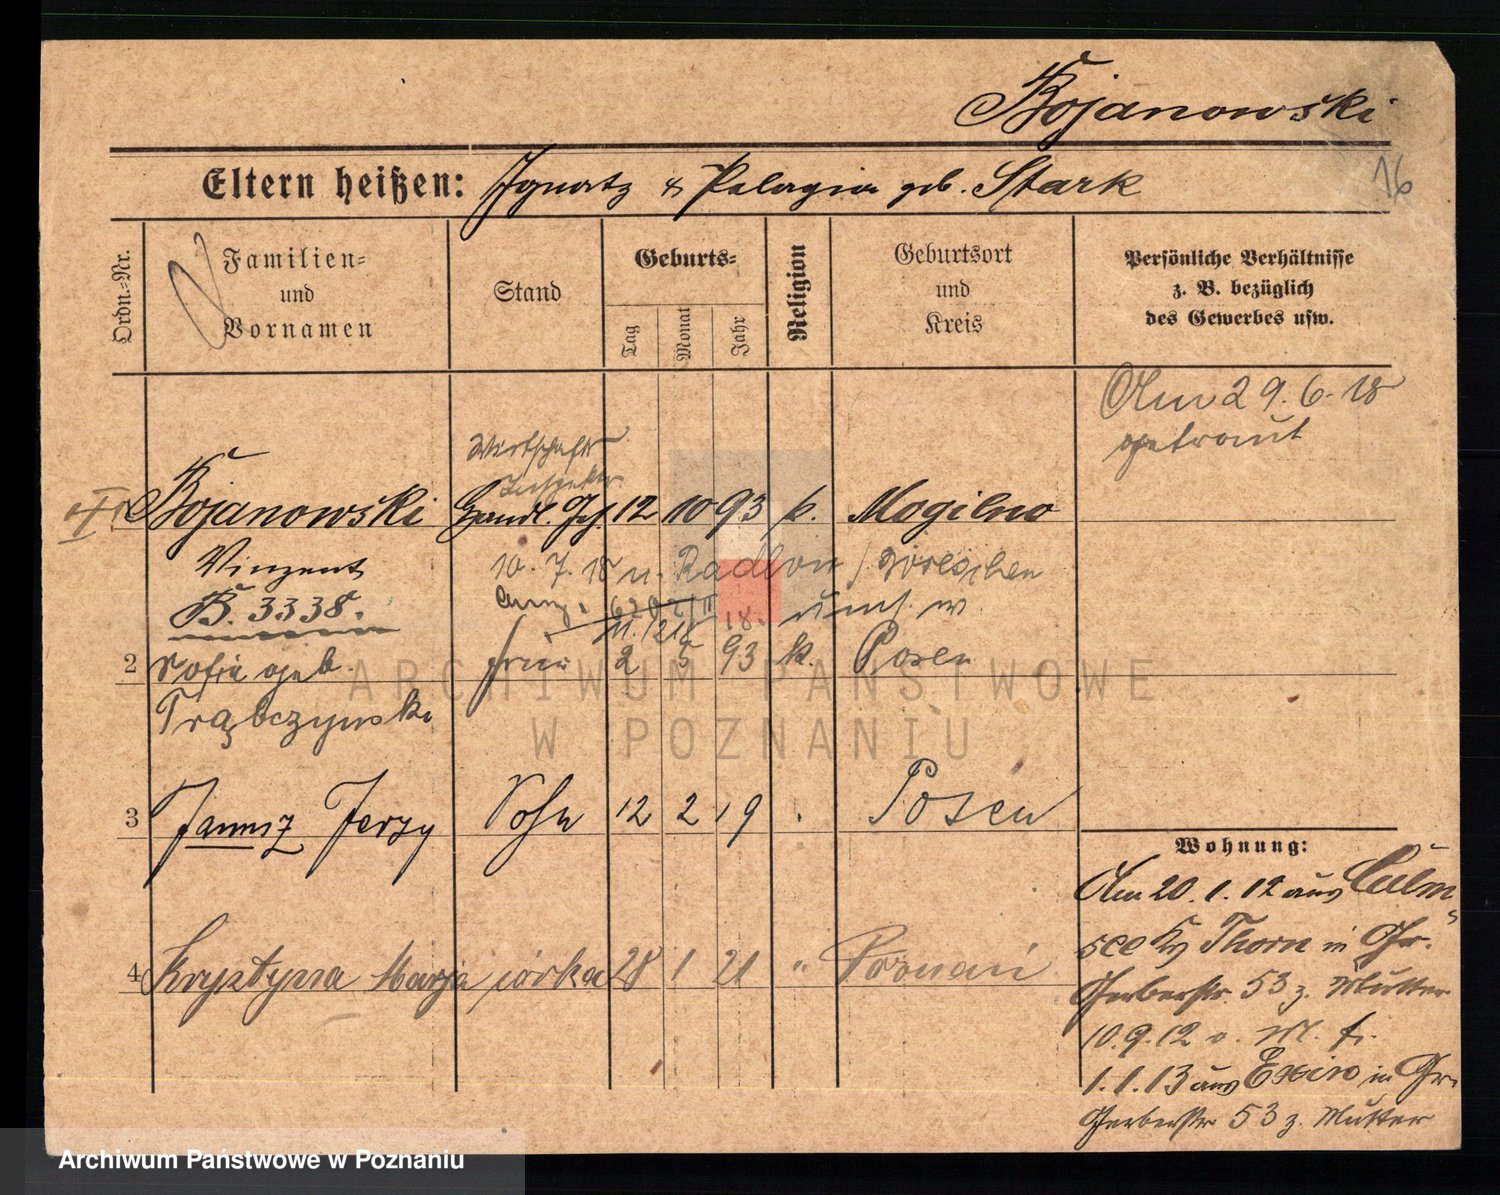 Bojanowski
16
Eltern heißen: Ignatz & Pelagia geb. Stark
Ordn.-Nr.
Familien-
und
Vornamen
Stand
Geburts-
Tag
Monat
Jahr
Religion
Geburtsort
und
Kreis
Persönliche Verhältnisse
z. B. bezüglich
des Gewerbes usw.
Am 29.6.18
getraut
Wirtschafts
Inspektor
Bojanowski Handl. Geh. 12 10 93 k. Mogilno
Vinzent
10.7.18 n. Radlow / Wreschen
B. 3338.
2 Sofia geb. Frau 2 5 93 k. Posen
Trąbczynska
3 Janusz Jerzy Sohn 12 2 19 Posen
4 Krystyna Marja córka 28 1 21 " Poznań
Wohnung:
Am 20.1.12 aus Culm-
see Kr Thorn in Gr.
Gerberstr. 53 z. Mutter
10.9.12 n.
1.1.13 aus Exin in Gr.
Gerberstr 53 z. Mutter
ARCHIWUM PAŃSTWOWE
W POZNANIU
Archiwum Państwowe w Poznaniu